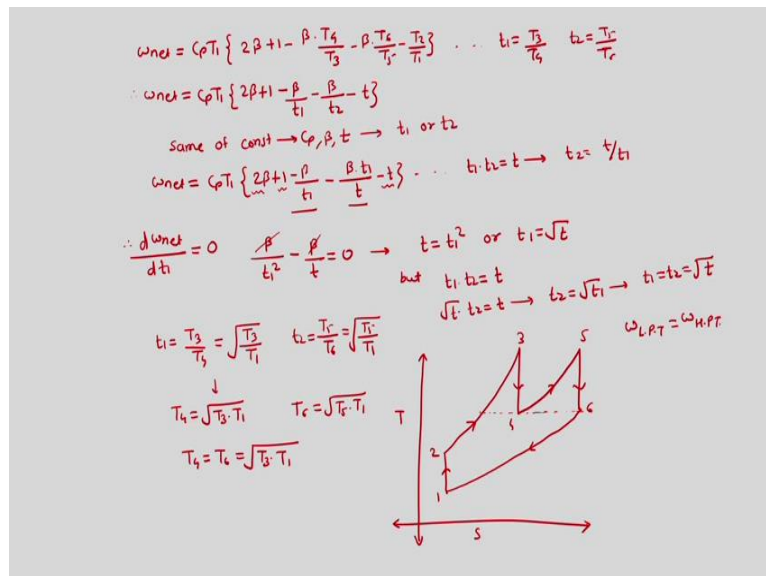 ωnet = CpT₁ { 2β+1 - β·T₄/T₃ - β·T₆/T₅ - T₂/T₁ } ... t₁ = T₃/T₄ t₂ = T₅/T₆
∴ ωnet = CpT₁ { 2β+1 - β/t₁ - β/t₂ - t }
Same of const → Cp, β, t → t₁ or t₂
ωnet = CpT₁ { 2β+1 - β/t₁ - β·t₁/t - t } ... t₁·t₂ = t → t₂ = t/t₁
∴ dωnet/dt₁ = 0 β/t₁² - β/t = 0 → t = t₁² or t₁ = √t
but t₁·t₂ = t
√t·t₂ = t → t₂ = √t₁ → t₁ = t₂ = √t
ω L.P.T = ω H.P.T.
t₁ = T₃/T₄ = √(T₃/T₁) t₂ = T₅/T₆ = √(T₅/T₁)
↓
T₄ = √(T₃·T₁) T₆ = √(T₅·T₁)
T₄ = T₆ = √(T₃·T₁)
3 5
T 4 6
2
1
S